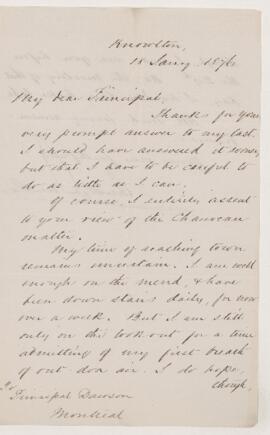 Knowlton,
18 Jany. 1876
My dear Principal,
Thanks for your
very prompt answer to my last.
I should have answered it sooner,
but that I have to be careful to
do as little as I can.
Of course, I entirely assent
to your view of the Chauveau
matter.
My time of reaching town
remains uncertain. I am well
enough on the mend, & have
been down stairs daily, for now
over a week. But I am still
only on the look out for a time
admitting of my first breath
of out door air. I do hope,
though,
Principal Dawson
Montreal